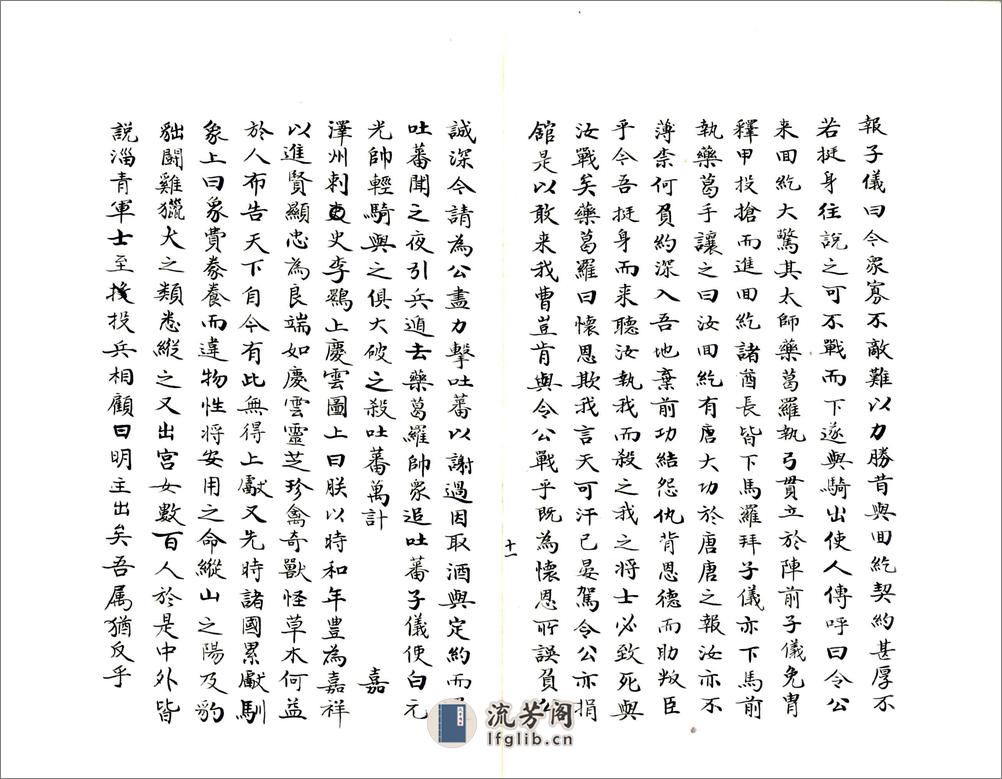 報子儀曰今衆寡不敵難以力勝昔與回紇契約甚厚不
若挺身往說之可不戰而下遂與騎出使人傳呼曰令公
来回紇大驚其太師藥葛羅執弓貫立於陣前子儀免冑
釋甲投搶而進回紇諸酋長皆下馬羅拜子儀亦下馬前
執藥葛手讓之曰汝回紇有唐大功於唐唐之報汝亦不
薄柰何負約深入吾地棄前功結怨仇背恩德而助叛臣
乎今吾挺身而来聽汝執我而殺之我之將士必致死與
汝戰矣藥葛羅曰懷恩欺我言天可汗已晏駕令公亦捐
舘是以敢来我曹豈肯與令公戰乎既為懷恩所誤負公
十一
誠深今請為公盡力擊吐蕃以謝過因取酒與定約而
吐蕃聞之夜引兵遁去藥葛羅帥衆追吐蕃子儀使白元
光帥輕騎與之俱大破之殺吐蕃萬計
澤州刺史李鷃上慶雲圖上曰朕以時和年豊為嘉祥
嘉
以進賢顯忠為良端如慶雲靈芝珍禽奇獸怪草木何益
於人布告天下自今有此無得上獻又先時諸國累獻馴
象上曰象費豢養而違物性将安用之命縱山之陽及豹
貀鬪雞獵犬之類悉縱之又出宮女數百人於是中外皆
説淄青軍士至投兵相顧曰明主出矣吾属猶反乎
流芳阁
lfglib.cn